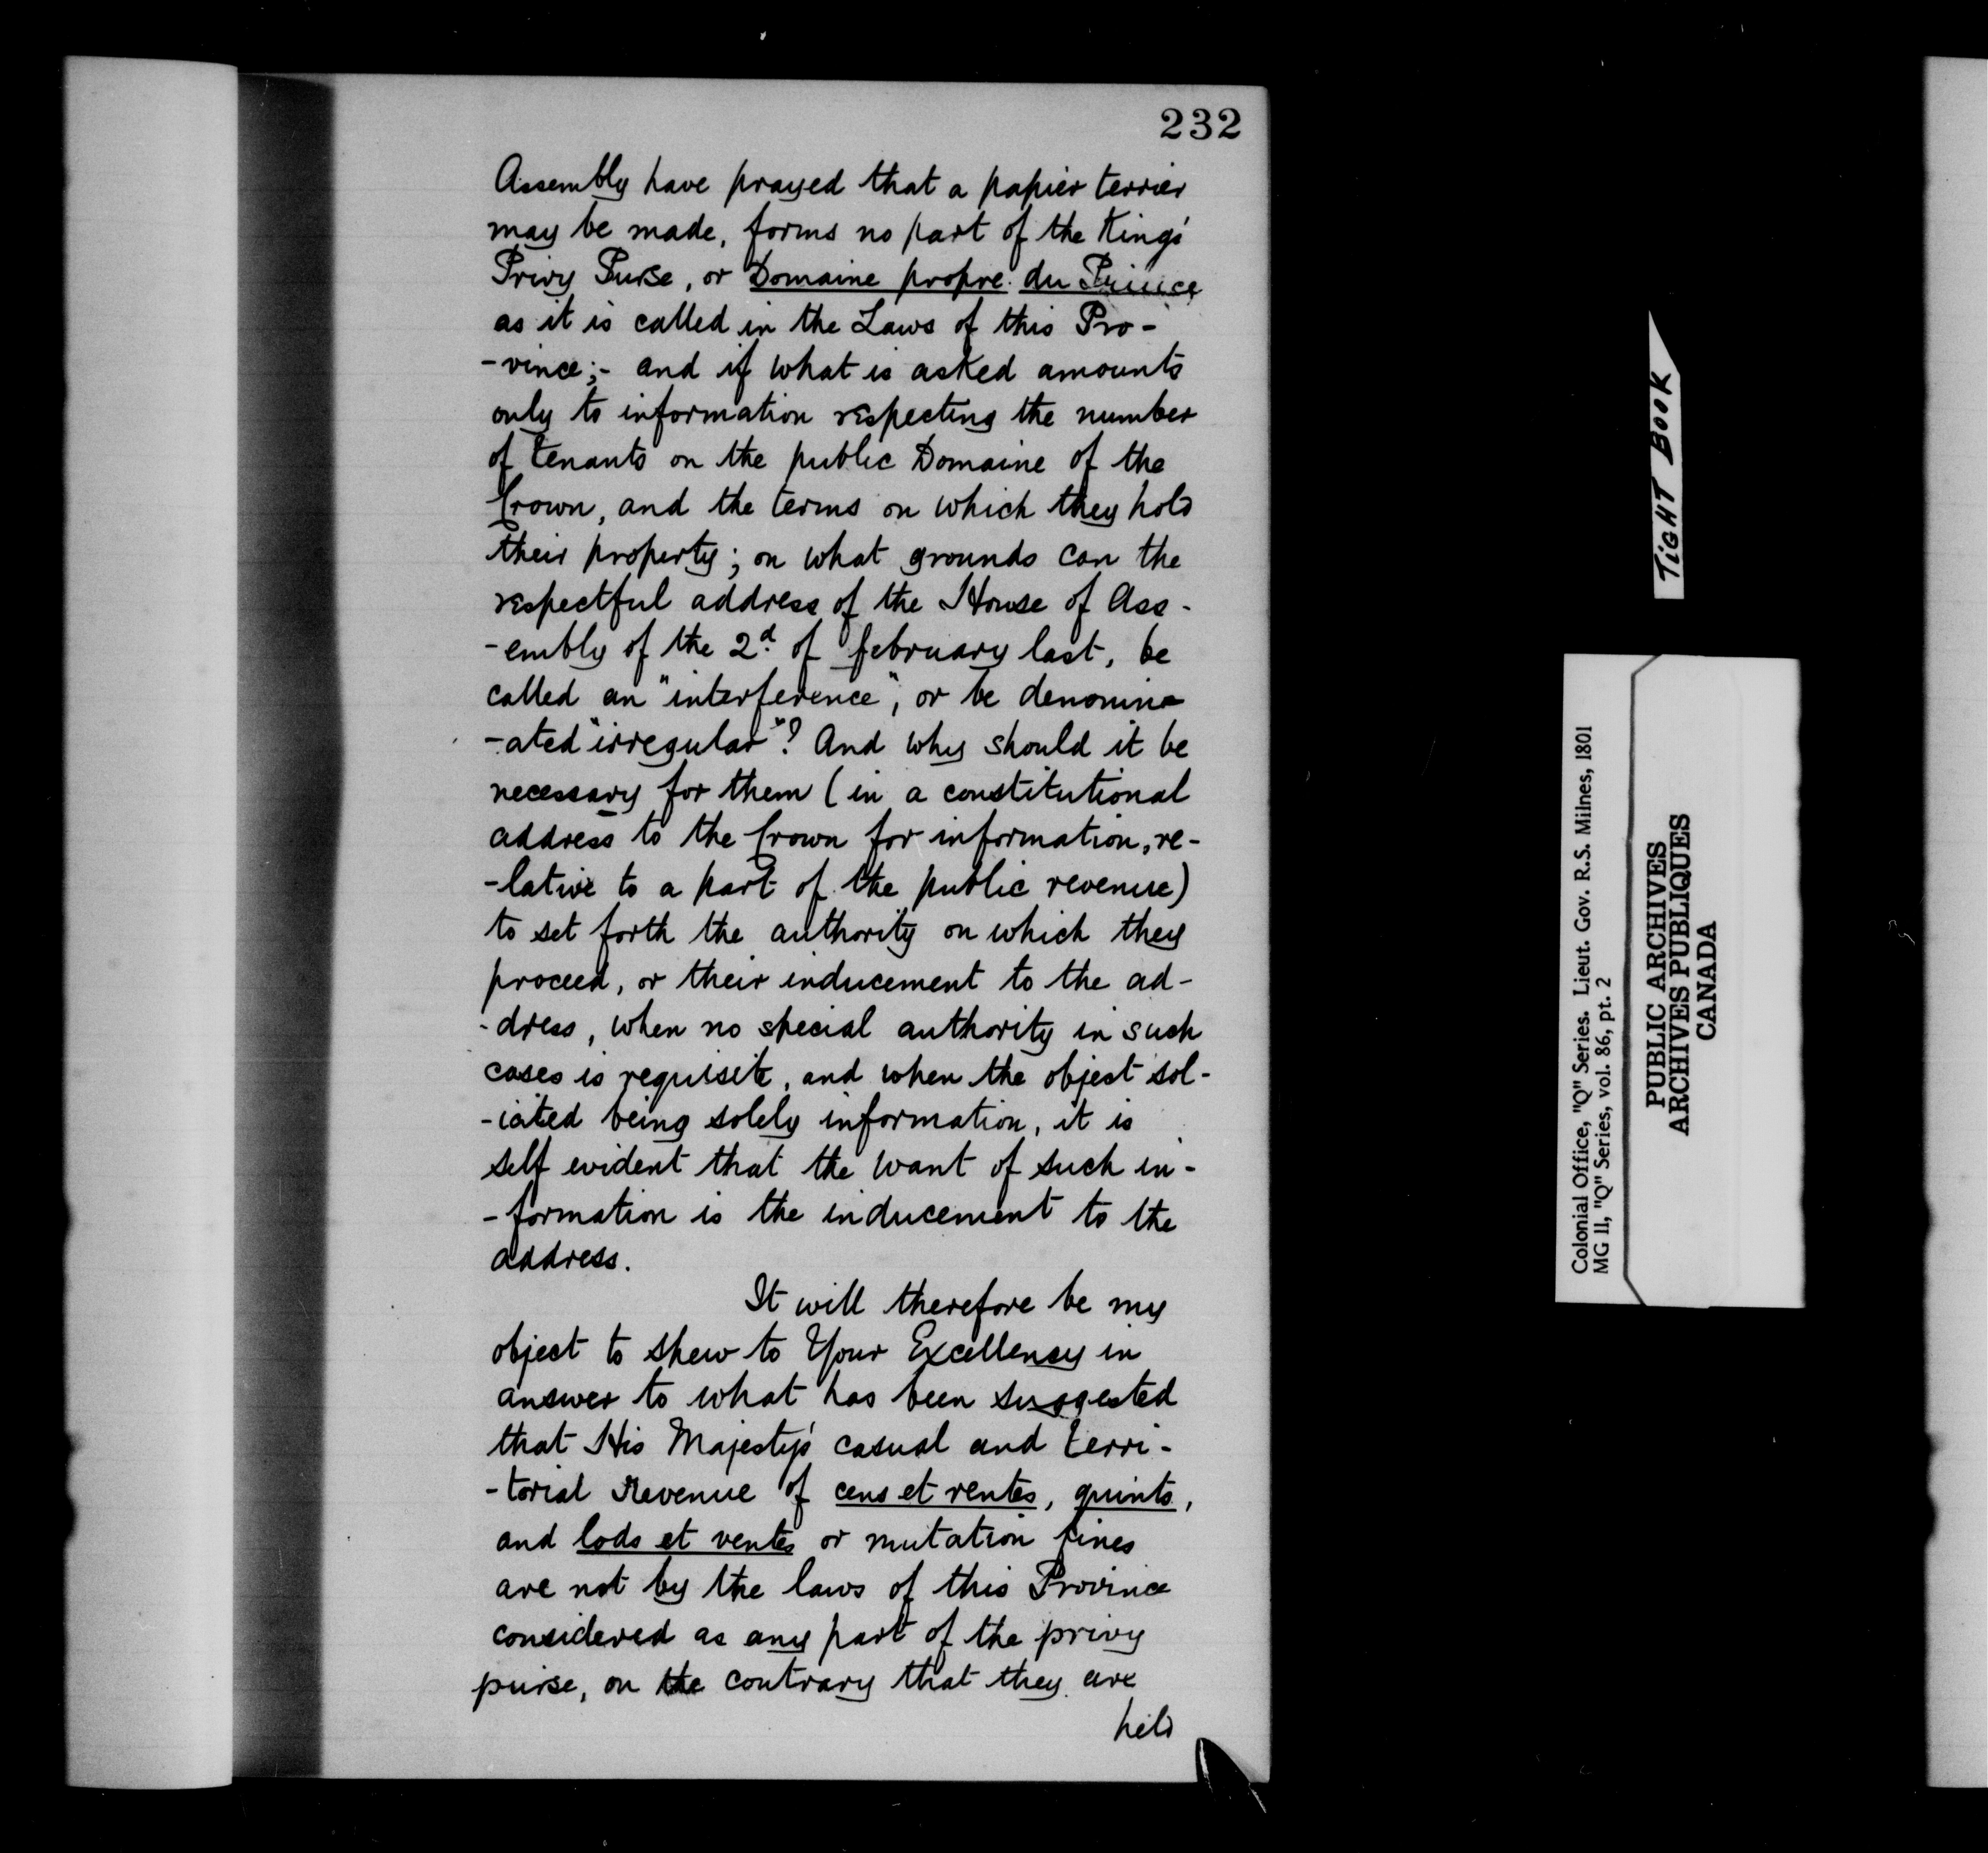 232
Assembly have prayed that a papier terrier
may be made, forms no part of the King's
Privy Purse, or Domaine propre du Prince
as it is called in the Laws of this Pro-
-vince;- and if what is asked amounts
only to information respecting the number
of tenants on the public Domaine of the
Crown, and the terms on which they hold
their property; on what grounds can the
respectful address of the House of Ass-
-embly of the 2d. of february last, be
called an "interference", or be denomin-
-ated "irregular"? And why should it be
necessary for them (in a constitutional
address to the Crown for information, re-
-lative to a part of the public revenue)
to set forth the authority on which they
proceed, or their inducement to the ad-
-dress, when no special authority in such
cases is requisite, and when the object sol-
-icited being solely information, it is
self evident that the want of such in-
-formation is the inducement to the
address.
It will therefore be my
object to shew to Your Excellency in
answer to what has been suggested
that His Majesty's casual and terri-
-torial Revenue of cens et rentes, quints,
and lods et ventes or mutation fines
are not by the laws of this Province
considered as any part of the privy
purse, on the contrary that they are
held
TIGHT BOOK
Colonial Office, "Q" Series. Lieut. Gov. R.S. Milnes, 1801
MG 11, "Q" Series, vol. 86, pt. 2
PUBLIC ARCHIVES
ARCHIVES PUBLIQUES
CANADA